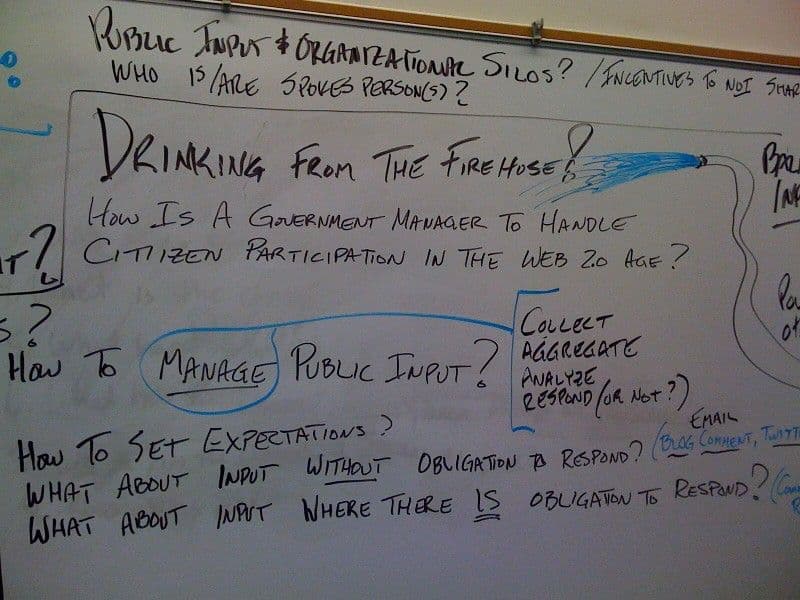 PUBLIC INPUT & ORGANIZATIONAL SILOS? / INCENTIVES TO NOT
WHO IS/ARE SPOKES PERSON(S)?
DRINKING FROM THE FIREHOSE!
HOW IS A GOVERNMENT MANAGER TO HANDLE
CITIIZEN PARTICIPATION IN THE WEB 2.0 AGE?
HOW TO MANAGE PUBLIC INPUT?
COLLECT
AGGREGATE
ANALYZE
RESPOND (OR NOT?)
HOW TO SET EXPECTATIONS?
EMAIL
WHAT ABOUT INPUT WITHOUT OBLIGATION TO RESPOND? (BLOG COMMENT,
WHAT ABOUT INPUT WHERE THERE IS OBLIGATION TO RESPOND?